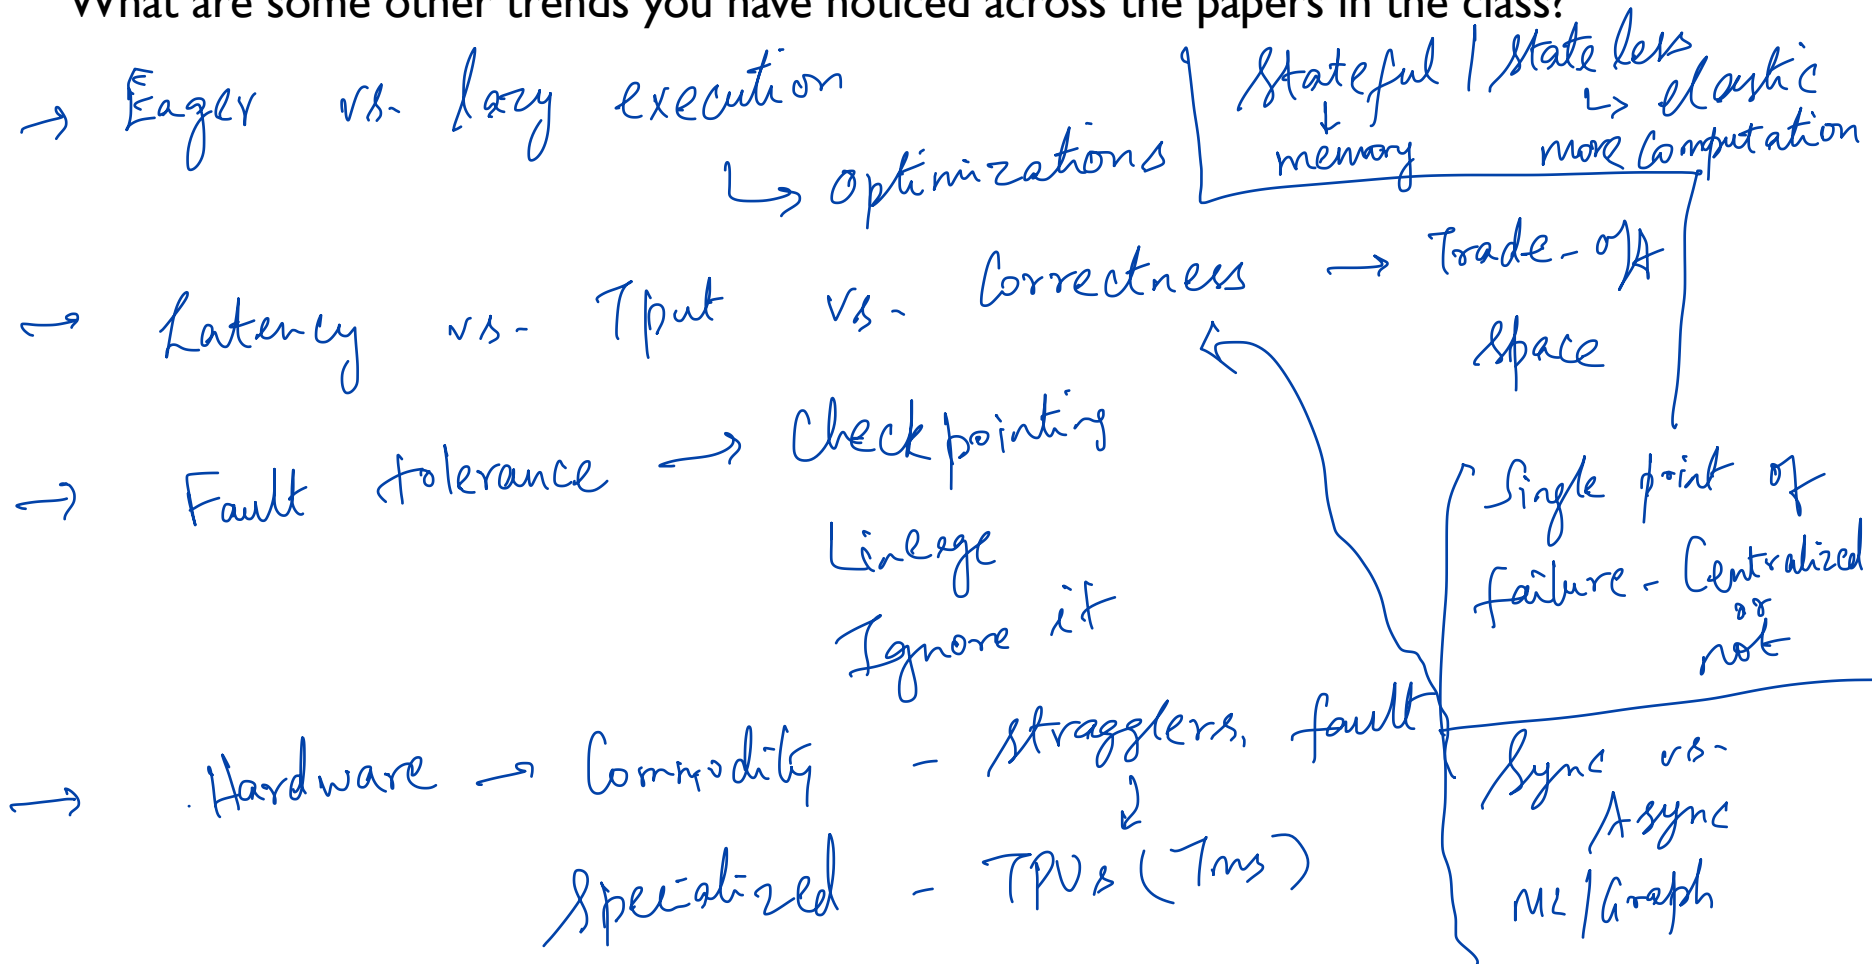 What are some other trends you have noticed across the papers in the class?
→ Eager vs. lazy execution
↳ Optimizations
Stateful | Stateless
↓ ↳ elastic
memory more computation
→ Latency vs. Tput vs. Correctness → Trade-off
space
→ Fault tolerance → Checkpointing
Lineage
Ignore it
Single point of
failure - Centralized
or
not
→ Hardware → Commodity - stragglers, fault
↓
Specialized - TPUs (7ms)
Sync vs.
Async
ML/Graph